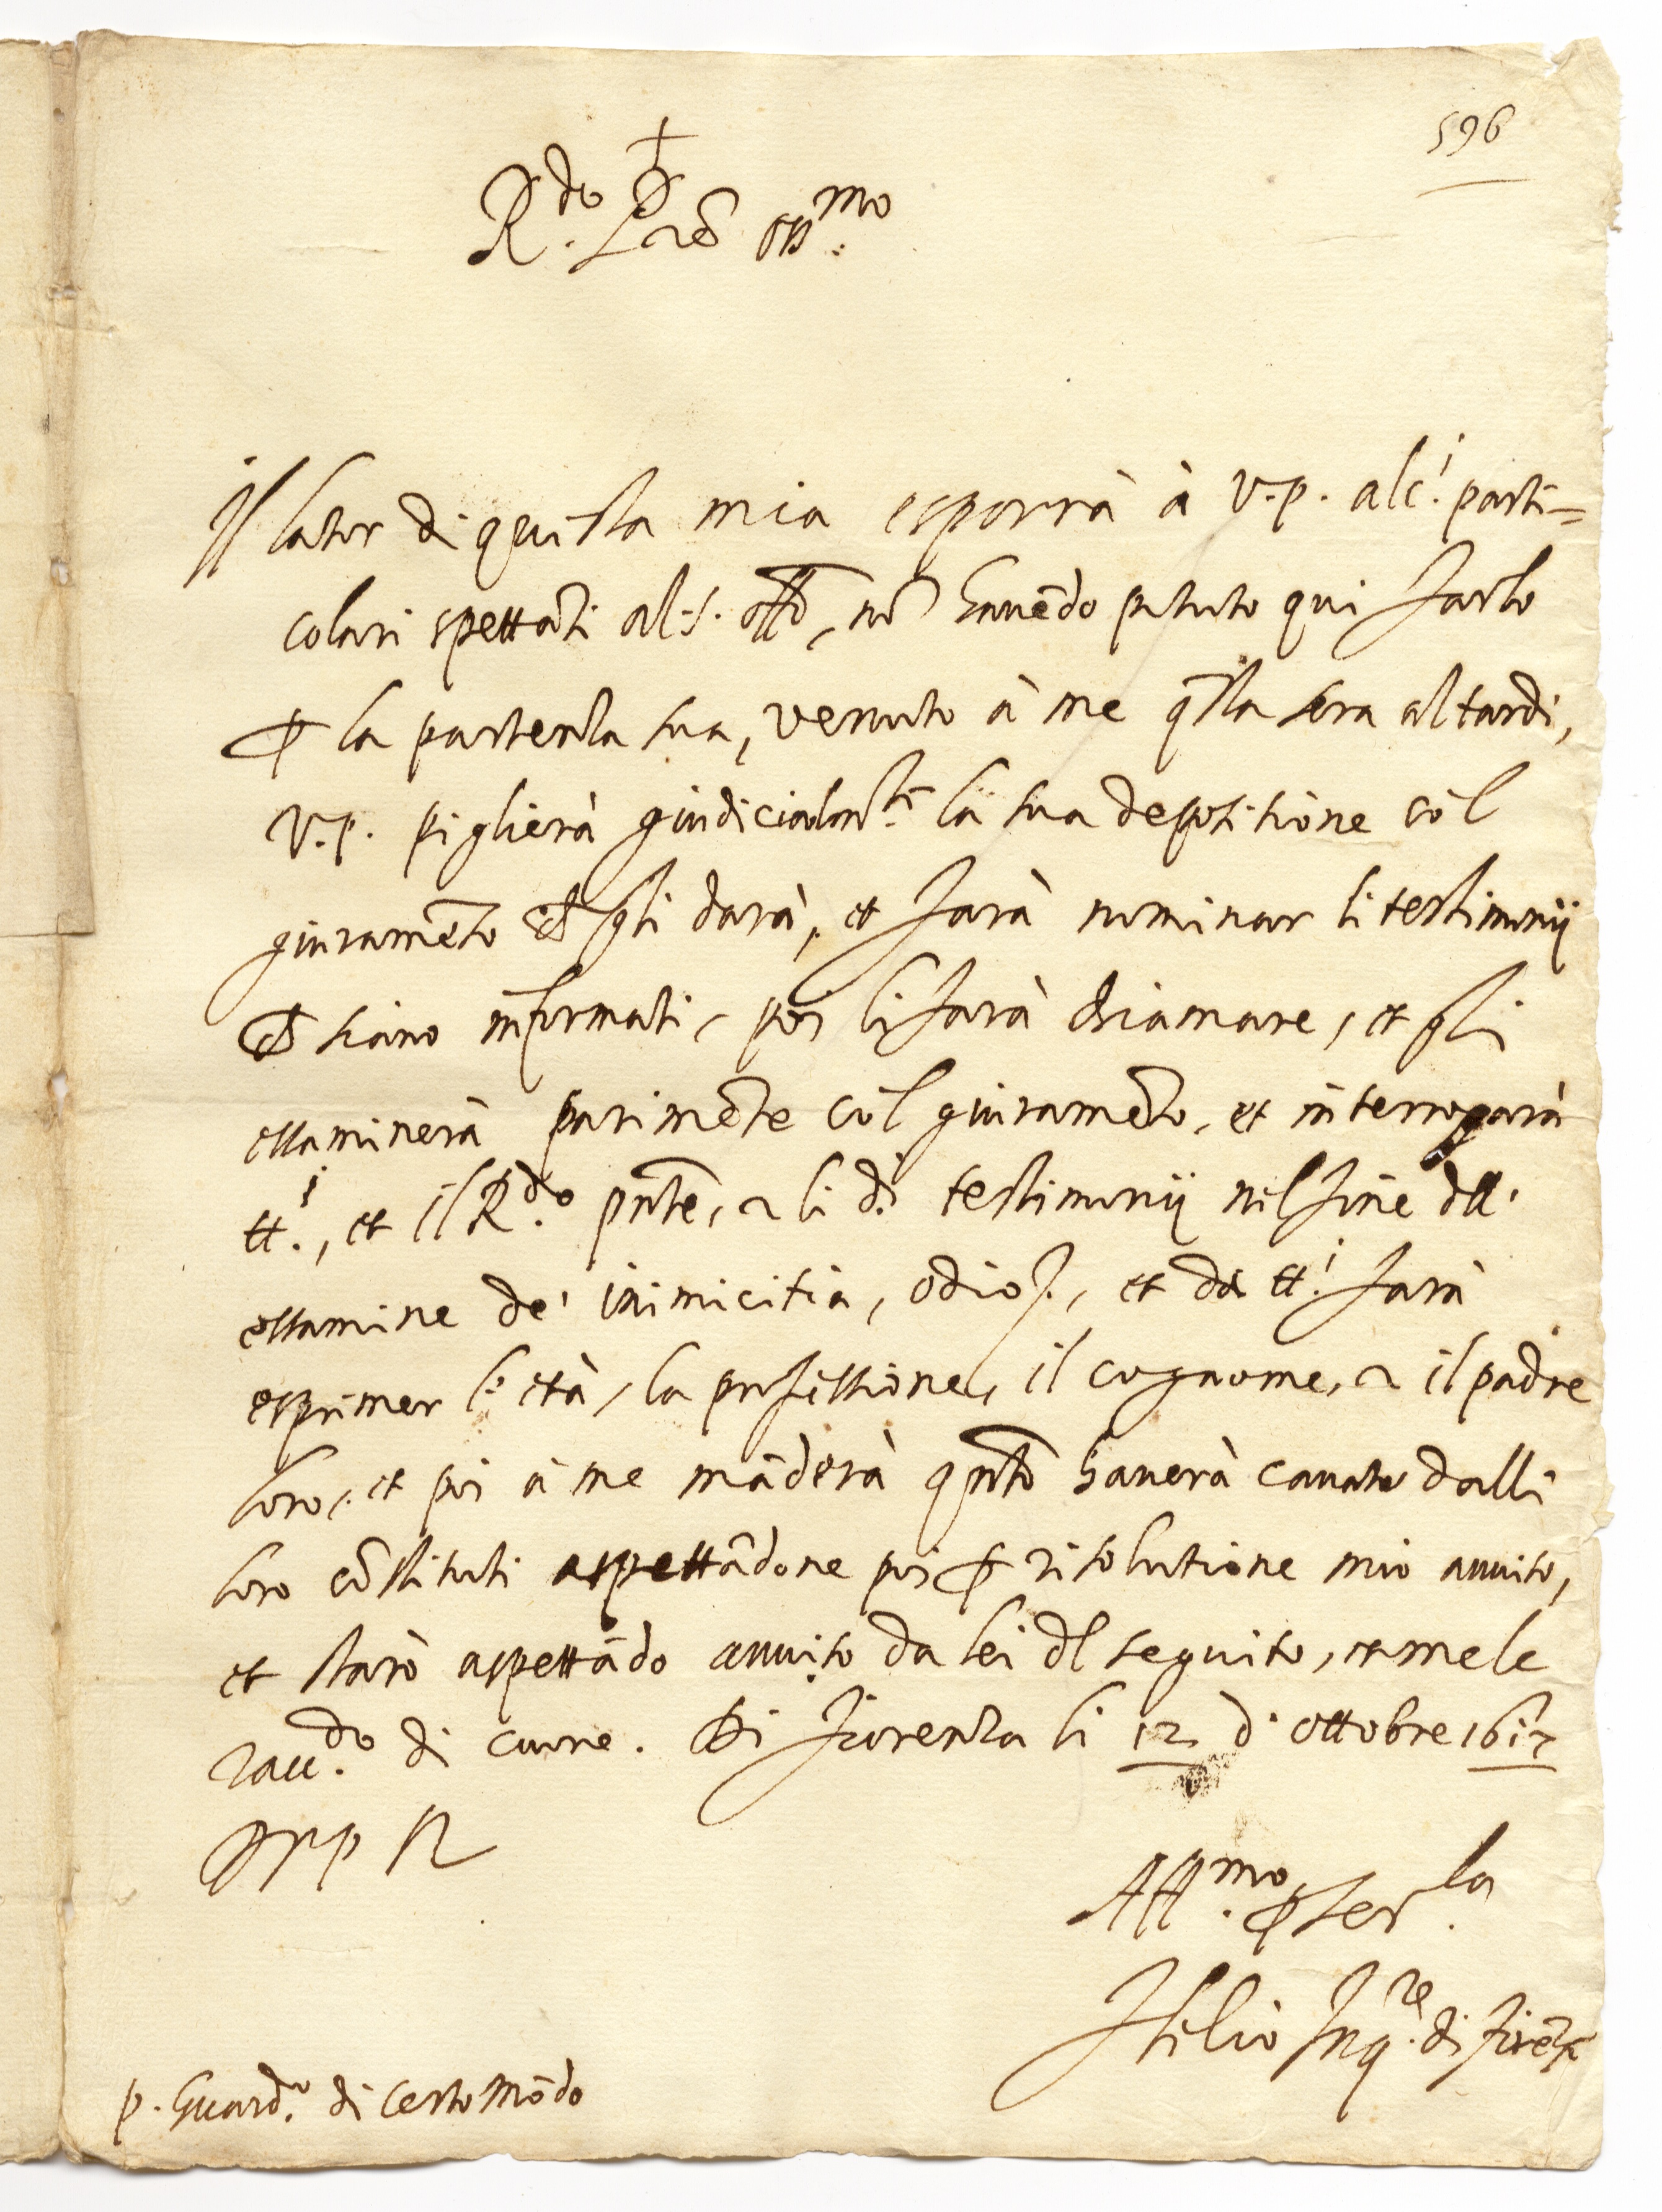 596
R.do P.re oss.mo
Il lator di questa mia esporrà à V.P. alc.i parti=
colari spettāti al S. Offo, nō havēdo potuto qui farlo
ꝑ la partenza sua, venuto à me q̄sta sera al tardi,
V.P. piglierà giudicialm.te la sua depositione cōl
giuramēto ch gli darà, et farà nominar li testimonij
ch siano informati, poi li farà chiamare, et gli
essaminerà parimēte cōl giuramēto, et interrogarà
tt.i, et il R.do pñte, & li d.i testimonij nel fine dll'
essamine de' inimicitia, odio, et da tt.i farà
esprimer l'età, la professione, il cognome, & il padre
loro, et poi à me māderà qñto haverà cavato dalli
loro cōstituti aspettādone poi ꝑ risolutione mio aviso,
et starò aspettādo aviso da lei dl seguito, et me le
racc.do di cuore. Di Fiorenza li 12 d' ottobre 1617
D V P R
Aff.mo ꝑ ser.la
Inq.re di Firēze
P. Guard.o di Certomōdo